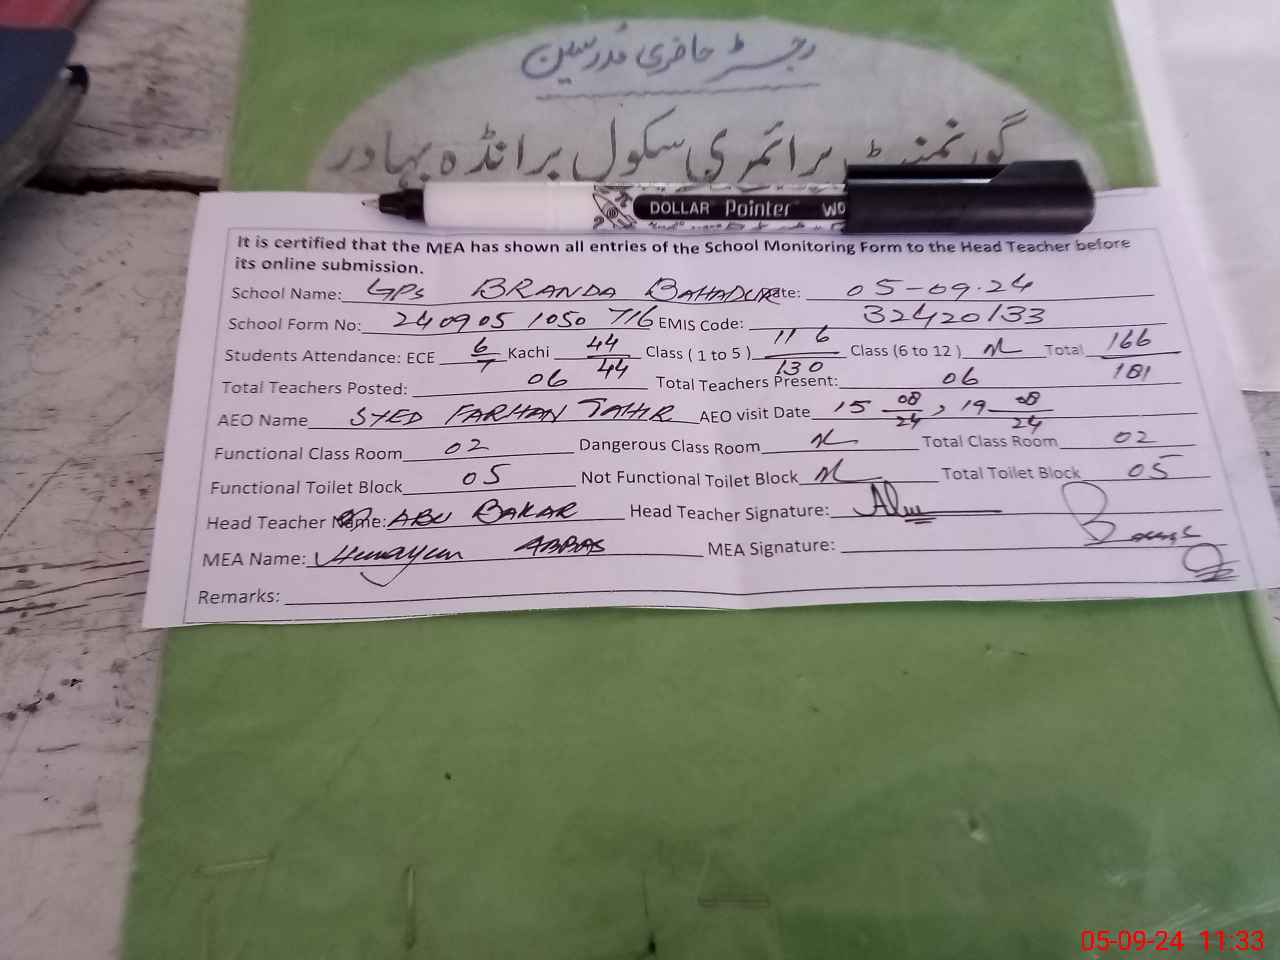 رجسٹر حاضری مدرسین
گورنمنٹ پرائمری سکول برانڈہ بہادر
DOLLAR Pointer WO
It is certified that the MEA has shown all entries of the School Monitoring Form to the Head Teacher before
its online submission.
School Name: GPS BRANDA BAHADUR ate: 05-09-24
School Form No: 240905 1050 716 EMIS Code: 32420133
Students Attendance: ECE 6/7 Kachi 44/44 Class ( 1 to 5 ) 116/130 Class (6 to 12 ) Total 166/181
Total Teachers Posted: 06 Total Teachers Present: 06
AEO Name SYED FARHAN TAHIR AEO visit Date 15 08/24, 19 08/24
Functional Class Room 02 Dangerous Class Room Total Class Room 02
Functional Toilet Block 05 Not Functional Toilet Block Total Toilet Block 05
Head Teacher Name: ABU BAKAR Head Teacher Signature:
MEA Name: Humayun ABBAS MEA Signature:
Remarks:
05-09-24 11:33